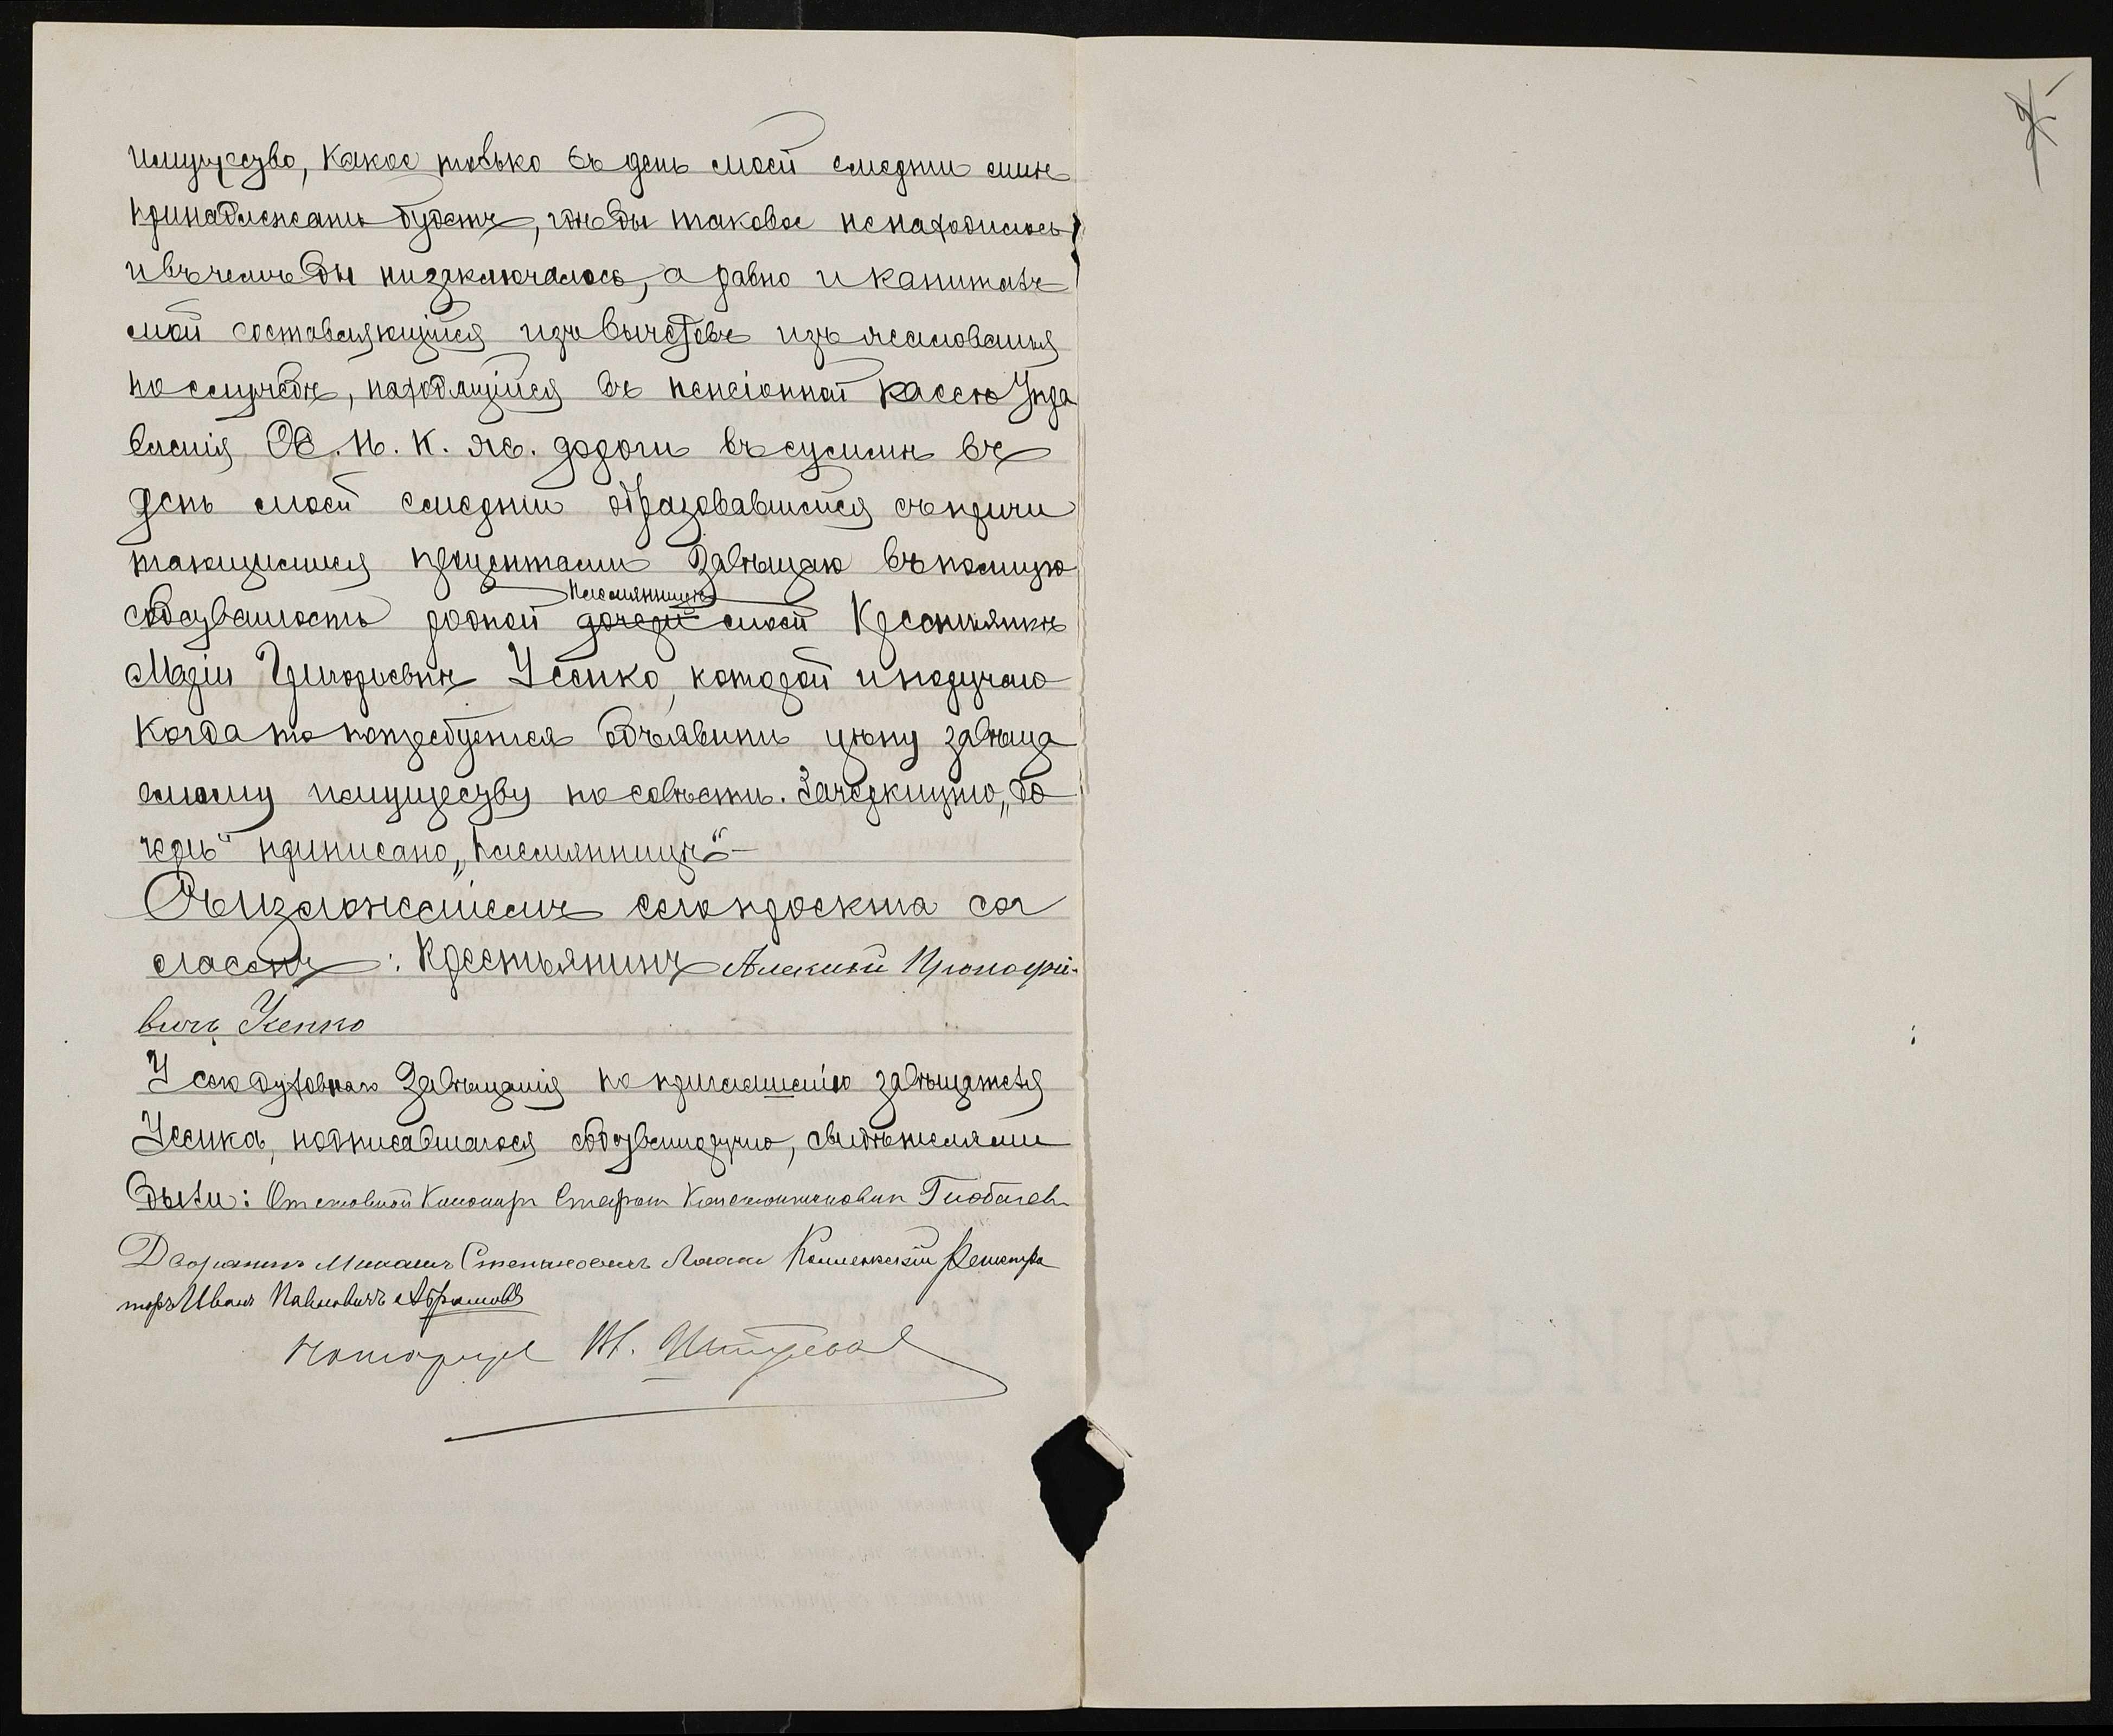 имущество, какое только въ день моей смерти мнѣ
принадлежать будетъ, гдѣ бы таковое не находилось
и въ чемъ бы ни заключалось, а равно и капиталъ
мой составляющійся изъ вычетовъ изъ жалованья
по службѣ, находящійся въ пенсіонной кассѣ Упра
вленія Ю. К. жел. дороги въ суммѣ въ
день моей смерти образовавшейся съ причи
тающимися процентами завѣщаю въ полную
собственность родной дочери племянницѣ моей Крестьянкѣ
Маріи Григорьевнѣ Усенко, которой и поручаю
когда то потребуется объявить цѣну завѣща
емому имуществу по совѣсти. Зачеркнуто „до
чери“ приписано „племянницѣ“ —
Съ изложеніемъ сего проекта сог
ласенъ: Крестьянинъ Алексѣй
вичъ Усенко
У сего духовнаго завѣщанія по приглашенію завѣщателя
Усенка, подписавшагося собственноручно, свидѣтелями
были: Отставной Стефан Константинович
Дворянинъ Михаилъ Степановичъ Коллежскій Регистра
торъ Иванъ Павловичъ Абрамовъ
Нотаріусъ